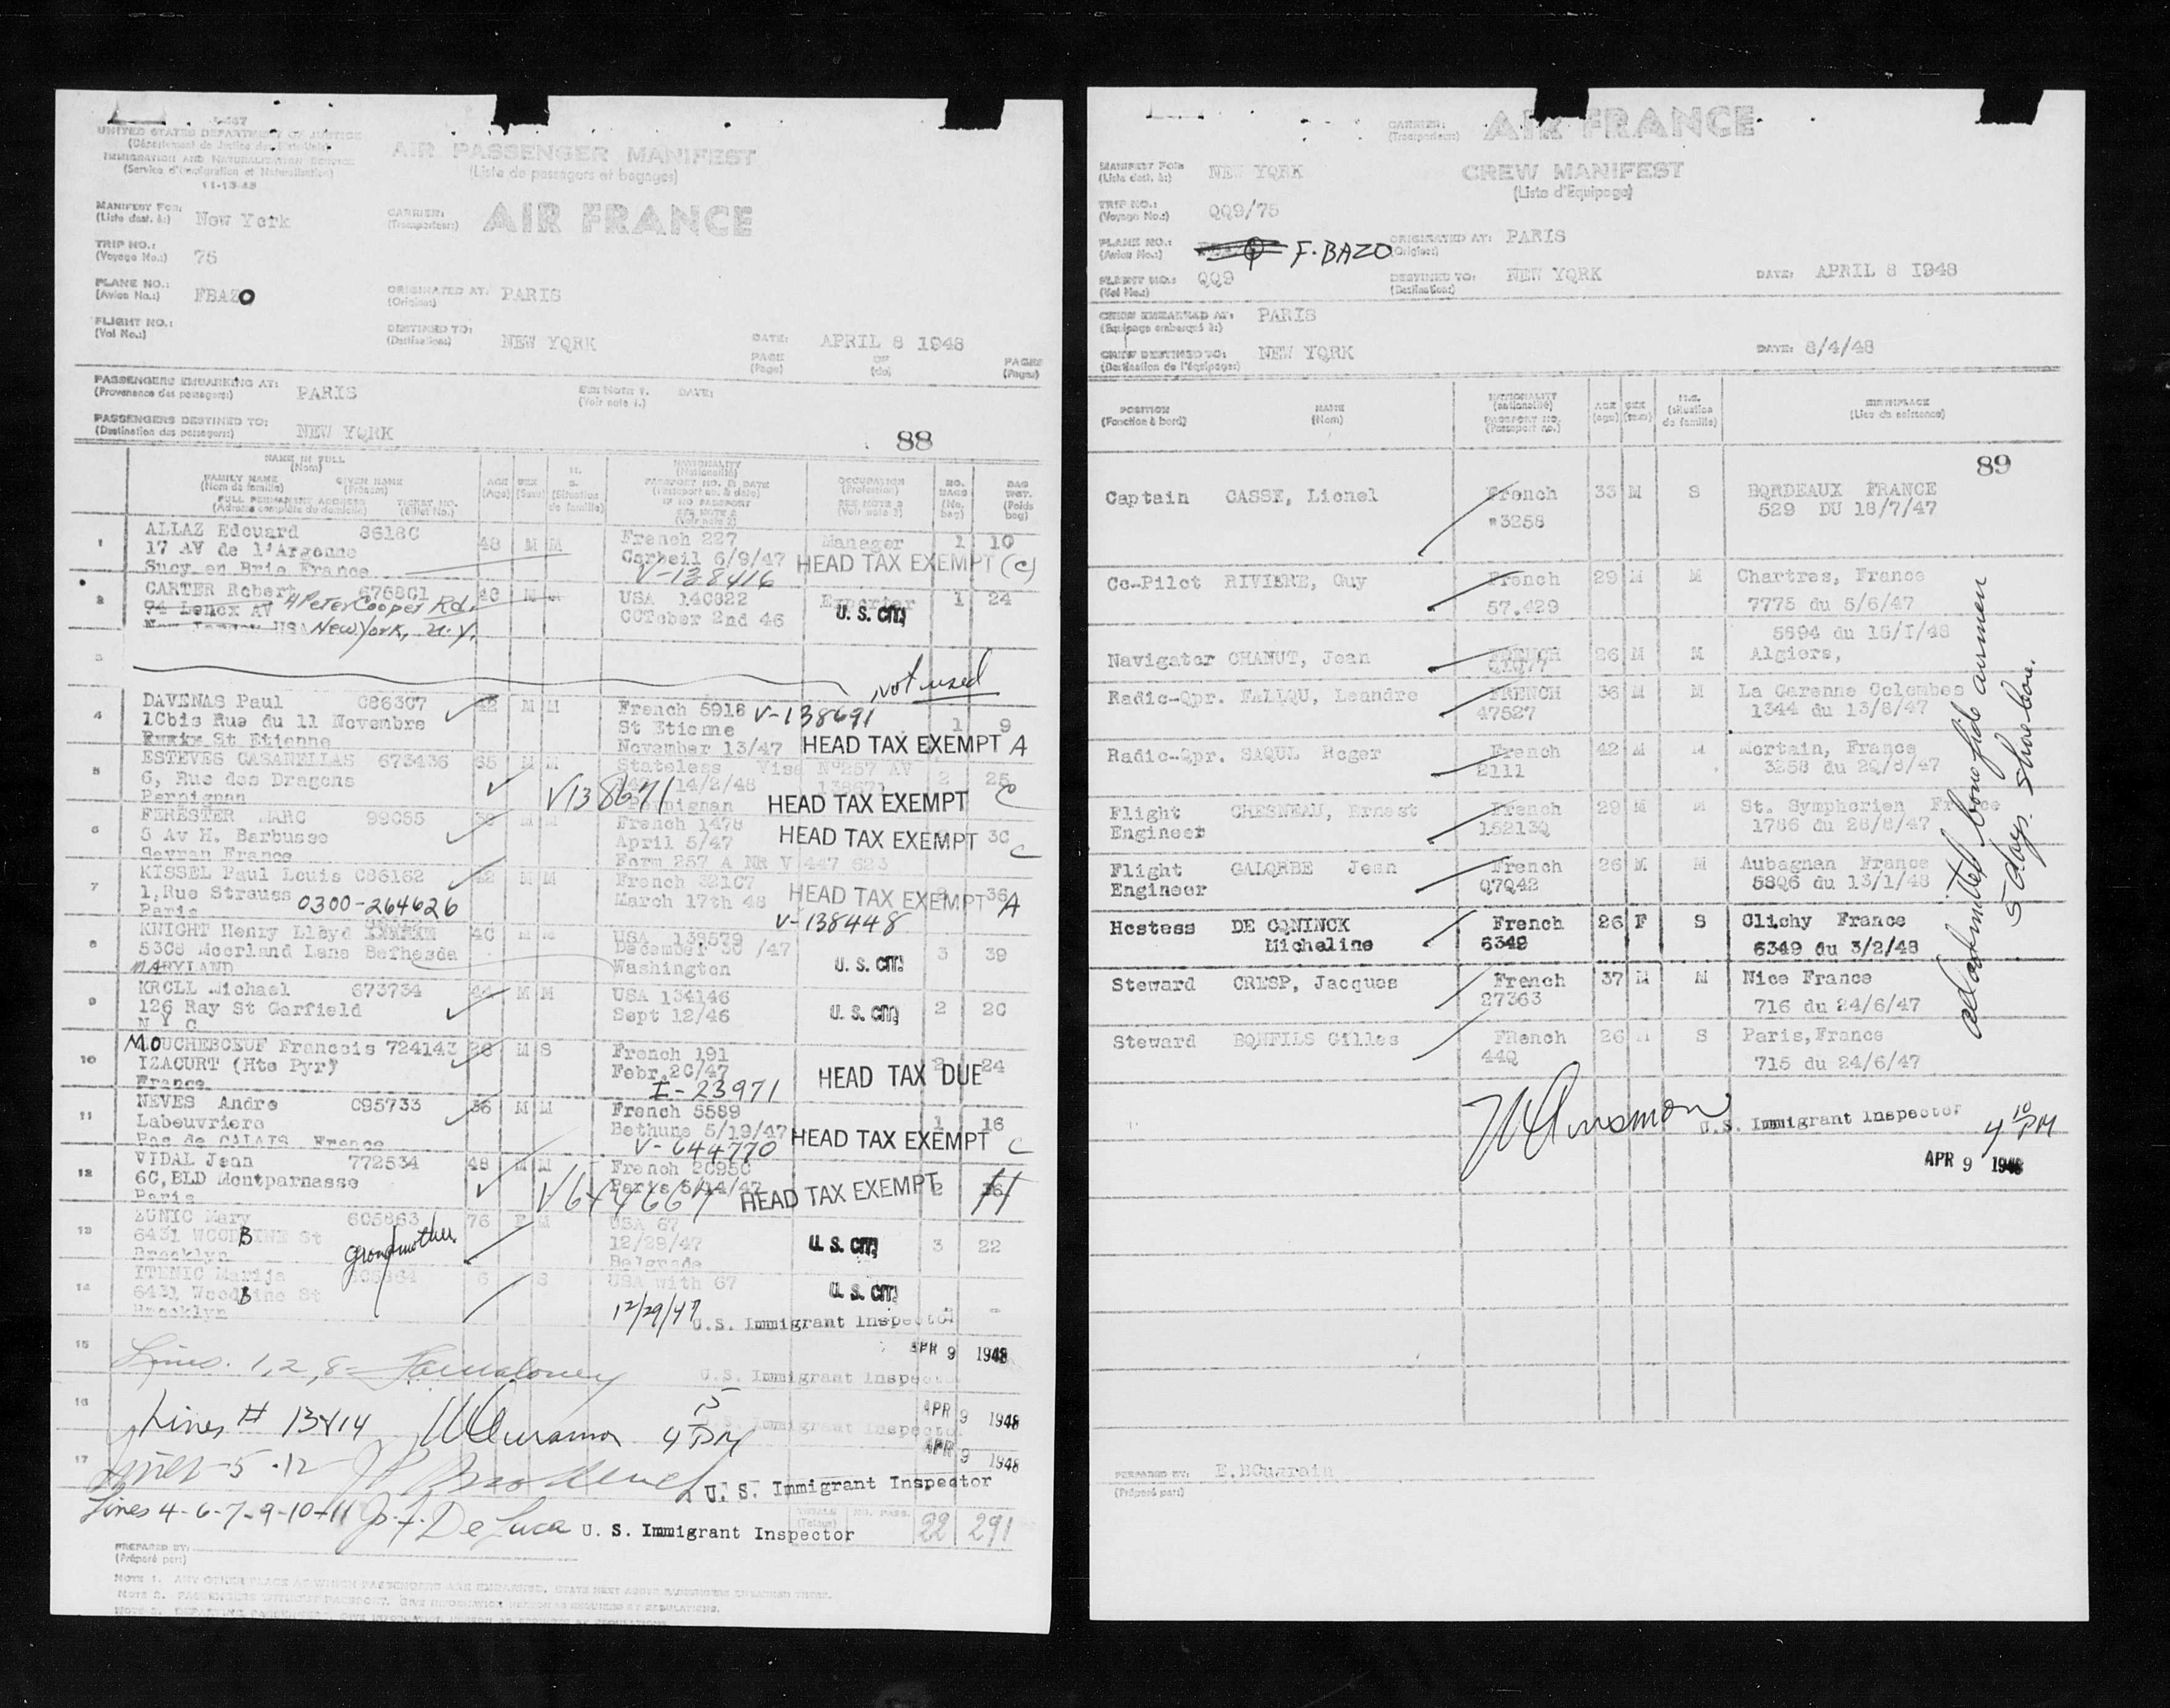 I-467
UNITED STATES DEPARTMENT OF JUSTICE
(Département de Justice des Etats-Unis)
IMMIGRATION AND NATURALIZATION SERVICE
(Service d'Immigration et Naturalisation)
11-13-45
AIR PASSENGER MANIFEST
(Liste de passagers et bagages)
MANIFEST FOR: New York
(Liste dest. à:)
CARRIER: AIR FRANCE
(Transporteur:)
TRIP NO.: 75
(Voyage No.:)
PLANE NO.: FBAZO
(Avion No.:)
ORIGINATED AT: PARIS
(Origine:)
FLIGHT NO.:
(Vol No.:)
DESTINED TO: NEW YQRK
(Destination:)
DATE: APRIL 8 1948
PAGE OF PAGES
(Page) (de) (Pages)
PASSENGERS EMBARKING AT: PARIS
(Provenance des passagers:)
SEE NOTE 1. DATE:
(Voir note 1.)
PASSENGERS DESTINED TO: NEW YQRK
(Destination des passagers:)
88
NAME IN FULL
(Nom)
FAMILY NAME GIVEN NAME
(Nom de famille) (Prénom)
FULL PERMANENT ADDRESS TICKET NO.
(Adresse complète du domicile) (Billet No.)
AGE SEX M.S.
(Age) (Sexe) (Situation de famille)
NATIONALITY
(Nationalité)
PASSPORT NO. & DATE
(Passeport no. & date)
IF NO PASSPORT
SEE NOTE 2
(Voir note 2)
OCCUPATION
(Profession)
SEE NOTE 3
(Voir note 3)
NO. BAGS
(No. bag)
BAG WGT.
(Poids bag)
1 ALLAZ Edouard 8618C 48 M M French 227 Manager 1 10
17 AV de l'Argonne Corbeil 6/9/47 HEAD TAX EXEMPT (C)
Sucy en Brie France V-138416
2 CARTER Robert 6768C1 48 M M USA 140822 Exporter 1 24
94 Lenox AV 4 Peter Cooper Rd. OCTober 2nd 46 U. S. CIT.
New York, N.Y.
3
not used
4 DAVENAS Paul C863C7 42 M M French 5918 V-138691 1 9
1Cbis Rue du 11 Novembre St Etienne
St Etienne November 13/47 HEAD TAX EXEMPT A
5 ESTEVES CASANELLAS 673436 65 M M Stateless Visa N°257 AV 2 25
6, Rue des Dragons 14/2/48 138671
Perpignan V138671 Perpignan HEAD TAX EXEMPT C
6 FERESTER MARC 99C65 M M French 1478 HEAD TAX EXEMPT 3C
5 Av H. Barbusse April 5/47 C
Sevran France Form 257 A NR V 447 623
7 KISSEL Paul Louis C86162 42 M M French 321C7 36
1,Rue Strauss 0300-264626 March 17th 48 HEAD TAX EXEMPT A
Paris V-138448
8 KNIGHT Henry Lloyd 4C M M USA 139579 3 39
53C8 Moorland Lane Bethesda December 30 /47 U. S. CIT.
MARYLAND Washington
9 KROLL Michael 673734 44 M M USA 134146 2 2C
126 Ray St Garfield Sept 12/46 U. S. CIT.
N Y C
10 MOUCHEBOEUF Francois 724143 M S French 191 2 24
IZACURT (Hte Pyr) Febr.2C/47 HEAD TAX DUE
France I-23971
11 NEVES Andre C95733 36 M M French 5589 1 16
Labeuvriere Bethune 5/19/47 HEAD TAX EXEMPT C
Pas de CALAIS France V-644770
12 VIDAL Jean 772534 48 M M French 2C95C 2 36
6C,BLD Montparnasse Paris 5/14/47 HEAD TAX EXEMPT
Paris V644667
13 ZUNIC Mary 605863 76 F M USA 67 3 22
6431 WOODBINE St grandmother 12/29/47 U. S. CIT.
Brooklyn Belgrade
14 ITENIC Marija 605864 6 S USA with 67 -
6431 Woodbine St U. S. CIT.
Brooklyn 12/29/47 U.S. Immigrant Inspector
15 APR 9 1948
Lines. 1,2,8- U.S. Immigrant Inspector
16 APR 9 1948
Lines # 13&14 4 15 PM U.S. Immigrant Inspector
17 APR 9 1948
Lines 5-12 U. S. Immigrant Inspector
Lines 4-6-7-9-10-11 J. F. De Luca U. S. Immigrant Inspector
TOTALS NO. PASS. 22 291
(Totaux)
PREPARED BY:
(Préparé par:)
NOTE 1. ANY OTHER PLACE AT WHICH PASSENGERS ARE EMBARKED, STATE NEXT ABOVE PASSENGERS EMBARKED THERE.
NOTE 2. PASSENGERS WITHOUT PASSPORT. GIVE INFORMATION AS REQUIRED BY REGULATIONS.
CARRIER: AIR FRANCE
(Transporteur:)
CREW MANIFEST
(Liste d'Equipage)
MANIFEST FOR: NEW YQRK
(Liste dest. à:)
TRIP NO.: QQ9/75
(Voyage No.:)
PLANE NO.: F.BAZO
(Avion No.:)
ORIGINATED AT: PARIS
(Origine:)
FLIGHT NO.: QQ9
(Vol No.:)
DESTINED TO: NEW YQRK
(Destination:)
DATE: APRIL 8 1948
CREW EMBARKED AT: PARIS
(Equipage embarqué à:)
CREW DESTINED TO: NEW YQRK
(Destination de l'équipage:)
DATE: 8/4/48
POSITION
(Fonction à bord)
NAME
(Nom)
NATIONALITY
(nationalité)
PASSPORT NO.
(Passeport no.)
AGE SEX M.S.
(age) (sexe) (situation de famille)
BIRTHPLACE
(Lieu de naissance)
89
Captain CASSE, Lionel French 33 M S BQRDEAUX FRANCE
3258 529 DU 18/7/47
Co-Pilot RIVIERE, Guy French 29 M M Chartres, France
57.429 7775 du 5/6/47
5694 du 16/I/48
Navigator CHANUT, Jean FRENCH 26 M M Algiers,
Radio-Qpr. FALLQU, Leandre FRENCH 36 M M La Garenne Colombes
47527 1344 du 13/8/47
Radio-Qpr. SAQUL Roger French 42 M M Mortain, France
2111 3258 du 2Q/8/47
Flight CHESNEAU, Ernest French 29 M M St. Symphorien France
Engineer 15213Q 1786 du 28/8/47
Flight GALQRBE Jean French 26 M M Aubagnan France
Engineer Q7Q42 58Q6 du 13/1/48
Hostess DE CQNINCK French 26 F S Clichy France
Micheline 6349 6349 du 3/2/48
Steward CRESP, Jacques French 37 M M Nice France
27363 716 du 24/6/47
Steward BQNFILS Gilles FRench 26 M S Paris,France
44Q 715 du 24/6/47
admitted bonafide airmen
5 days. shore leave.
U.S. Immigrant Inspector 4 10 PM
APR 9 1948
PREPARED BY:
(Préparé par:)